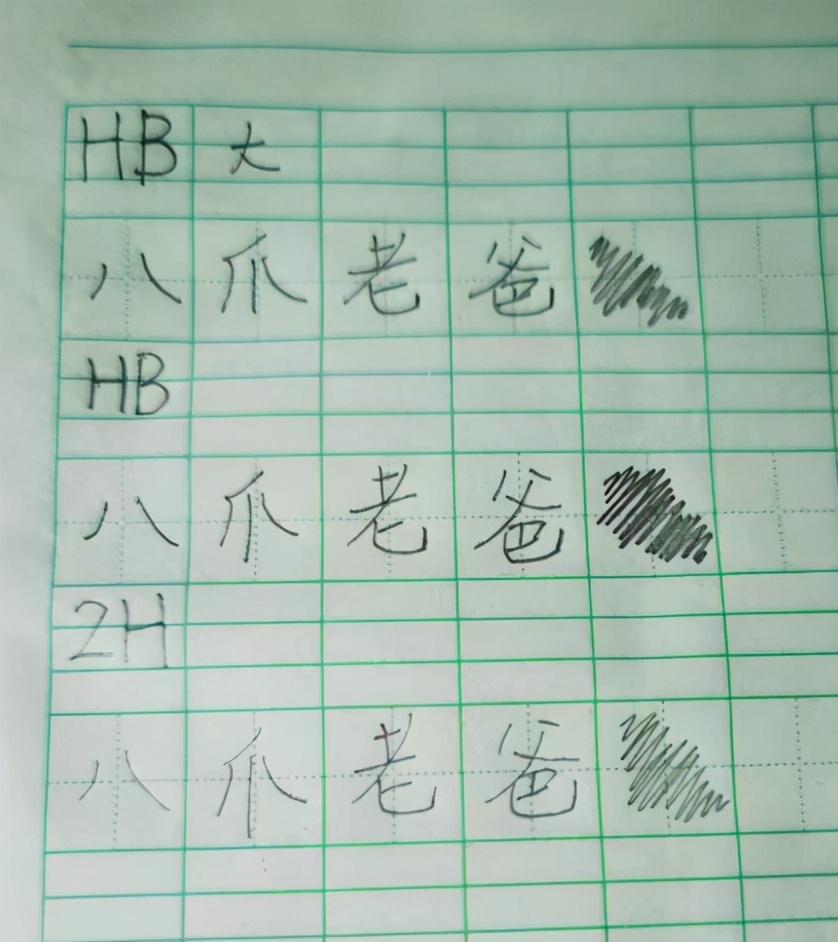 HB 大
八 爪 老 爸
HB
八 爪 老 爸
2H
八 爪 老 爸